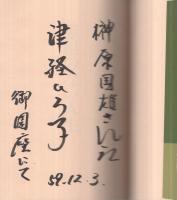 榊原国雄さん江
津軽ひろ子
御園座にて
59.12.3.